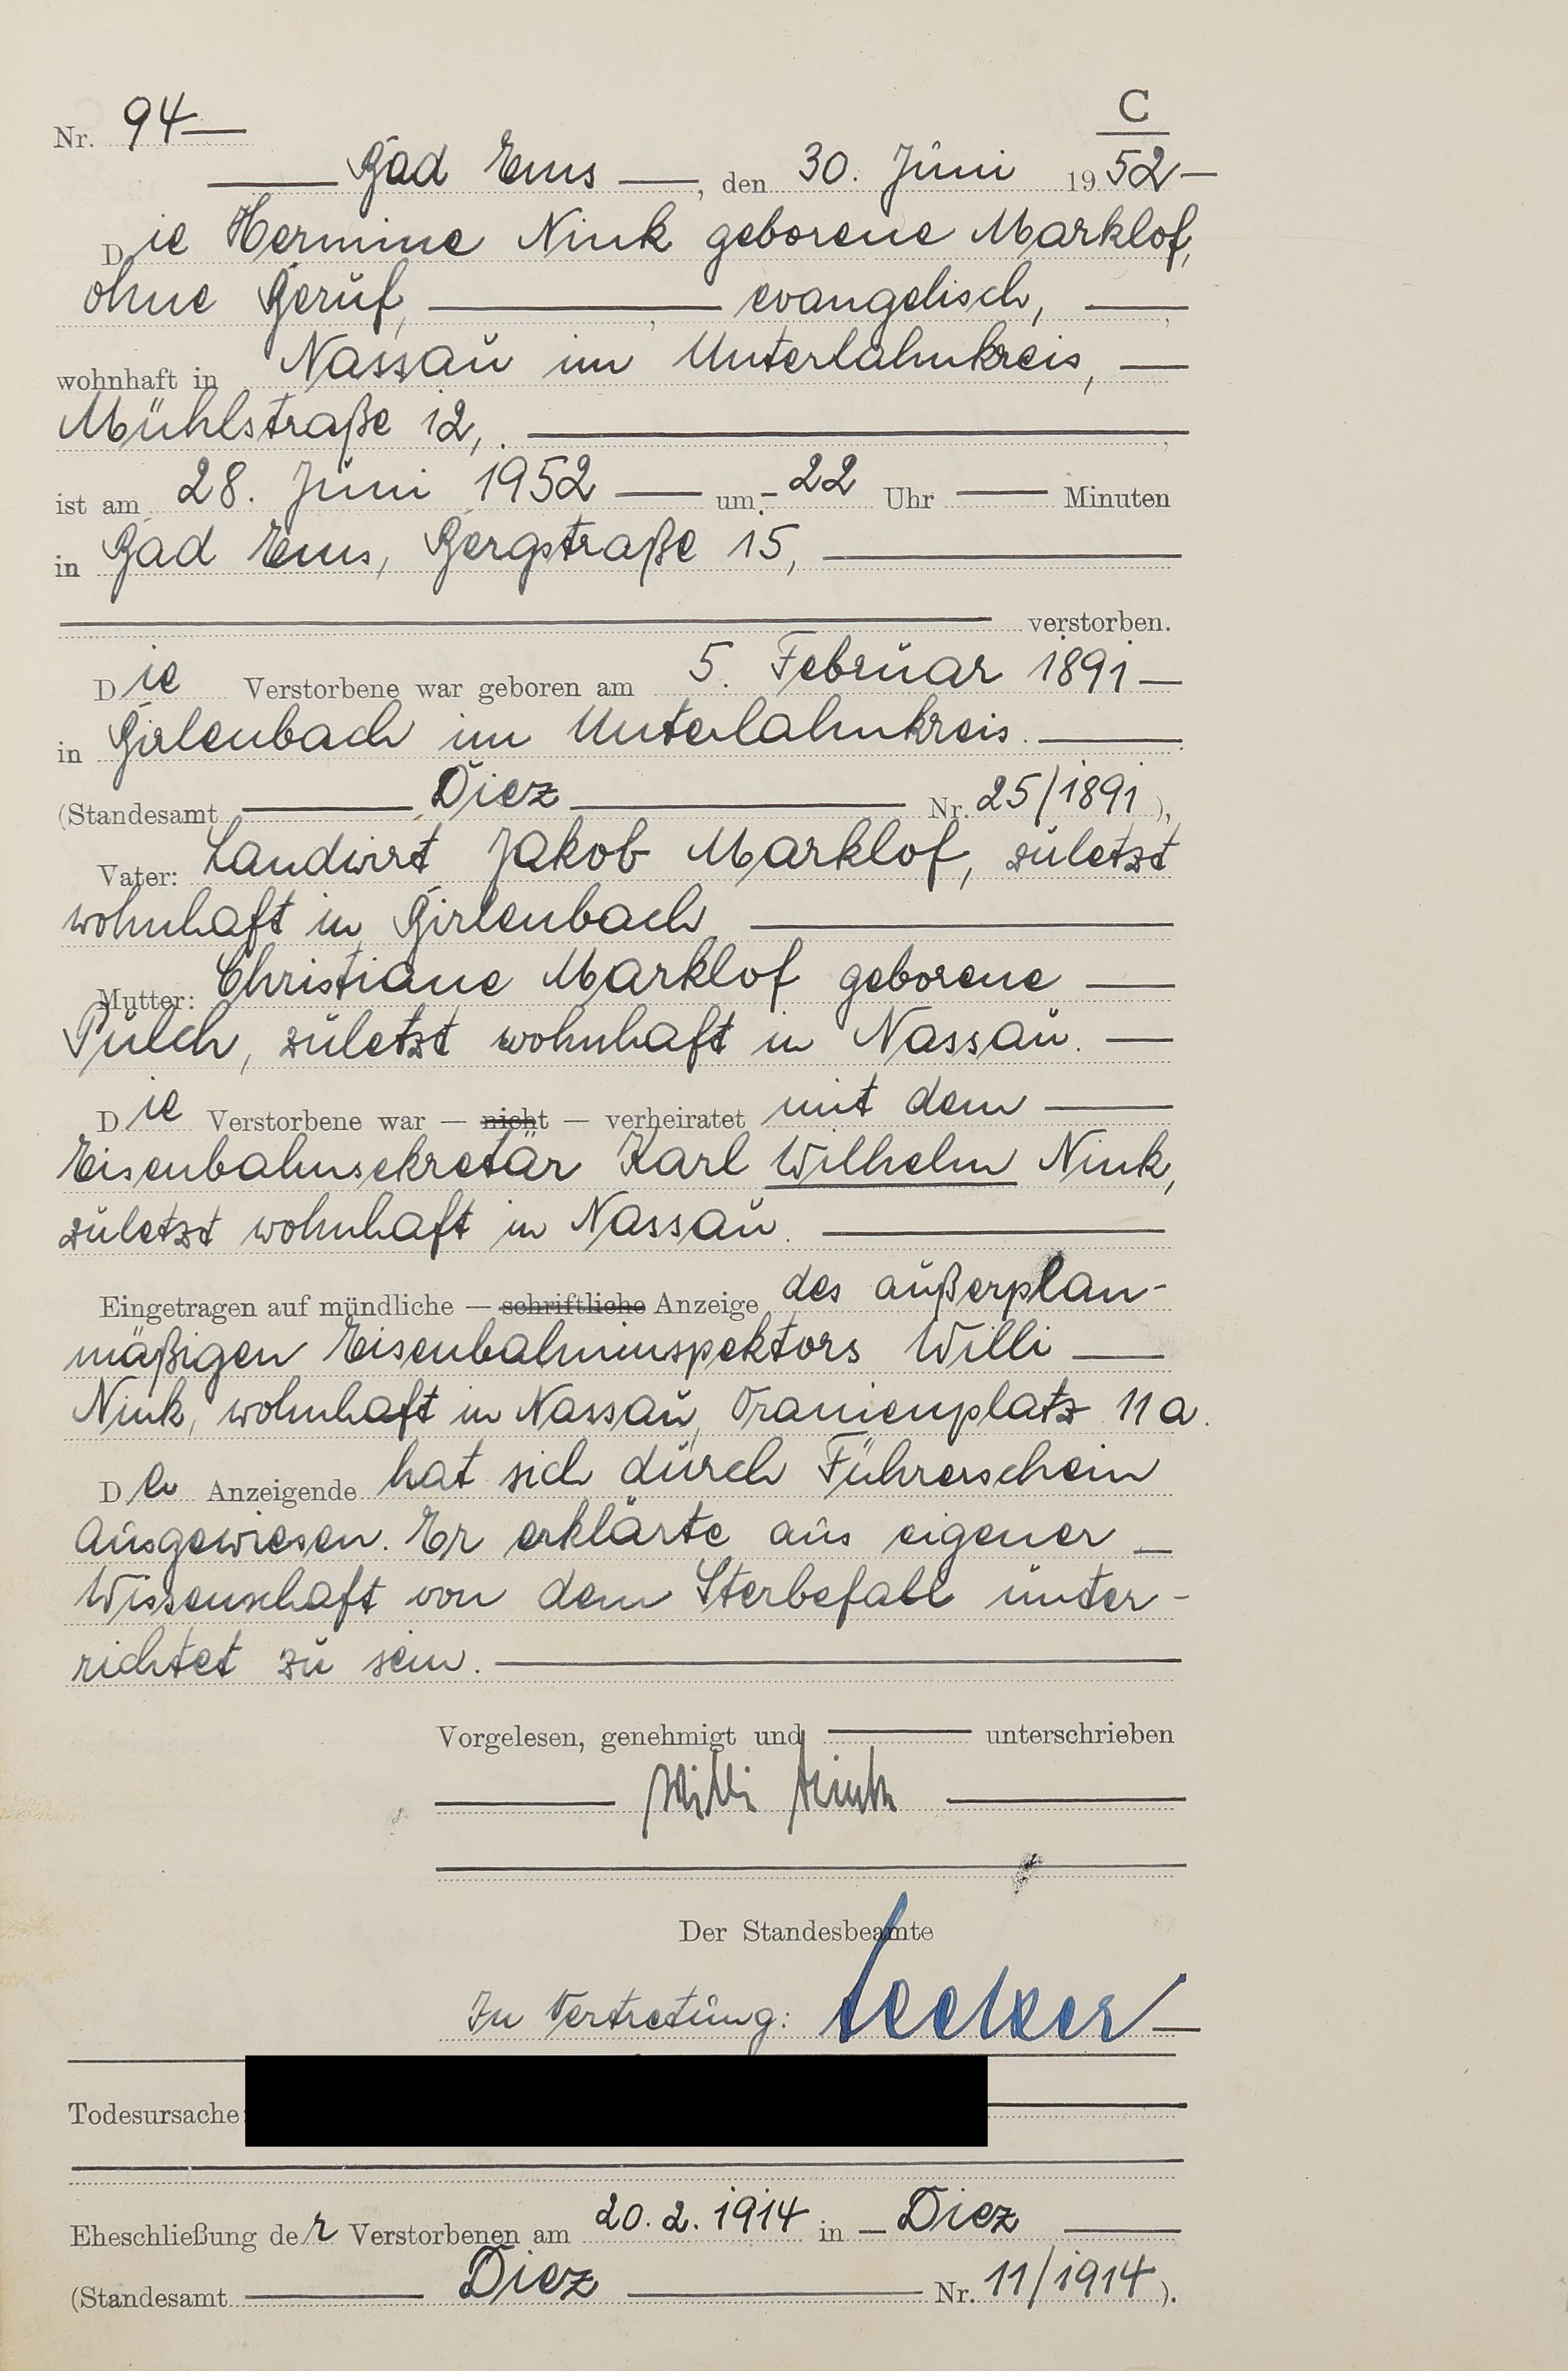 C
Nr. 94
Bad Ems, den 30. Juni 1952
Die Hermine Nink geborene Marklof,
ohne Beruf, evangelisch,
wohnhaft in Nassau im Unterlahnkreis,
Mühlstraße 12,
ist am 28. Juni 1952 um 22 Uhr Minuten
in Bad Ems, Bergstraße 15,
verstorben.
Die Verstorbene war geboren am 5. Februar 1891
in Birlenbach im Unterlahnkreis.
(Standesamt Diez Nr. 25/1891),
Vater: Landwirt Jakob Marklof, zuletzt
wohnhaft in Birlenbach
Mutter: Christiane Marklof geborene
Pülch, zuletzt wohnhaft in Nassau.
Die Verstorbene war — nicht — verheiratet mit dem
Eisenbahnsekretär Karl Wilhelm Nink,
zuletzt wohnhaft in Nassau.
Eingetragen auf mündliche — schriftliche Anzeige des außerplan-
mäßigen Eisenbahninspektors Willi
Nink, wohnhaft in Nassau, Oranienplatz 11a.
Der Anzeigende hat sich durch Führerschein
ausgewiesen. Er erklärte aus eigener
Wissenschaft von dem Sterbefall unter-
richtet zu sein.
Vorgelesen, genehmigt und unterschrieben
Willi Nink
Der Standesbeamte
In Vertretung:
Todesursache:
Eheschließung der Verstorbenen am 20.2.1914 in Diez
(Standesamt Diez Nr. 11/1914).